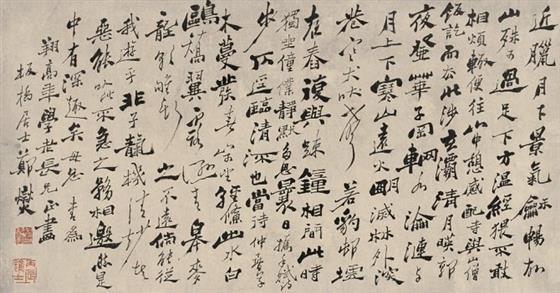 近臘月下景氣龢暢故
山殊可過足下方温經猥不敢
相煩輒便往山中憩感配寺與山僧
飯訖而去北涉玄灞清月映郭
夜登華子岡輞水淪漣與
月上下寒山遠火明滅林外深
巷寒犬吠聲若豹邨墟
夜舂復與疎鐘相間此時
獨坐僮僕靜默多思曩昔攜手賦詩
步仄逕臨清流也當待仲春卉
木蔓發春山可望輕鯈出水白
鷗矯翼露濕青皋麥
隴朝雊斯之不遠倘能從
我遊乎非子天機清妙者
惡能以此不急之務相邀然是
中有深趣矣毋忽 書為
翔高年學老長兄正
板橋居士鄭燮